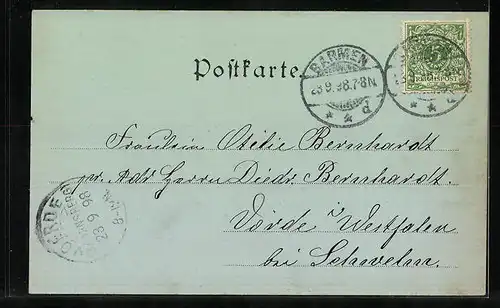 Postkarte
BARMEN
23.9.98.7-8N.
* * d
5
REICHSPOST
Fräulein Otilie Bernhardt
pr. Adr Herrn Diedr. Bernhardt.
Vörde i Westfalen
bei Schwelm.
VOERDE
23 9 98